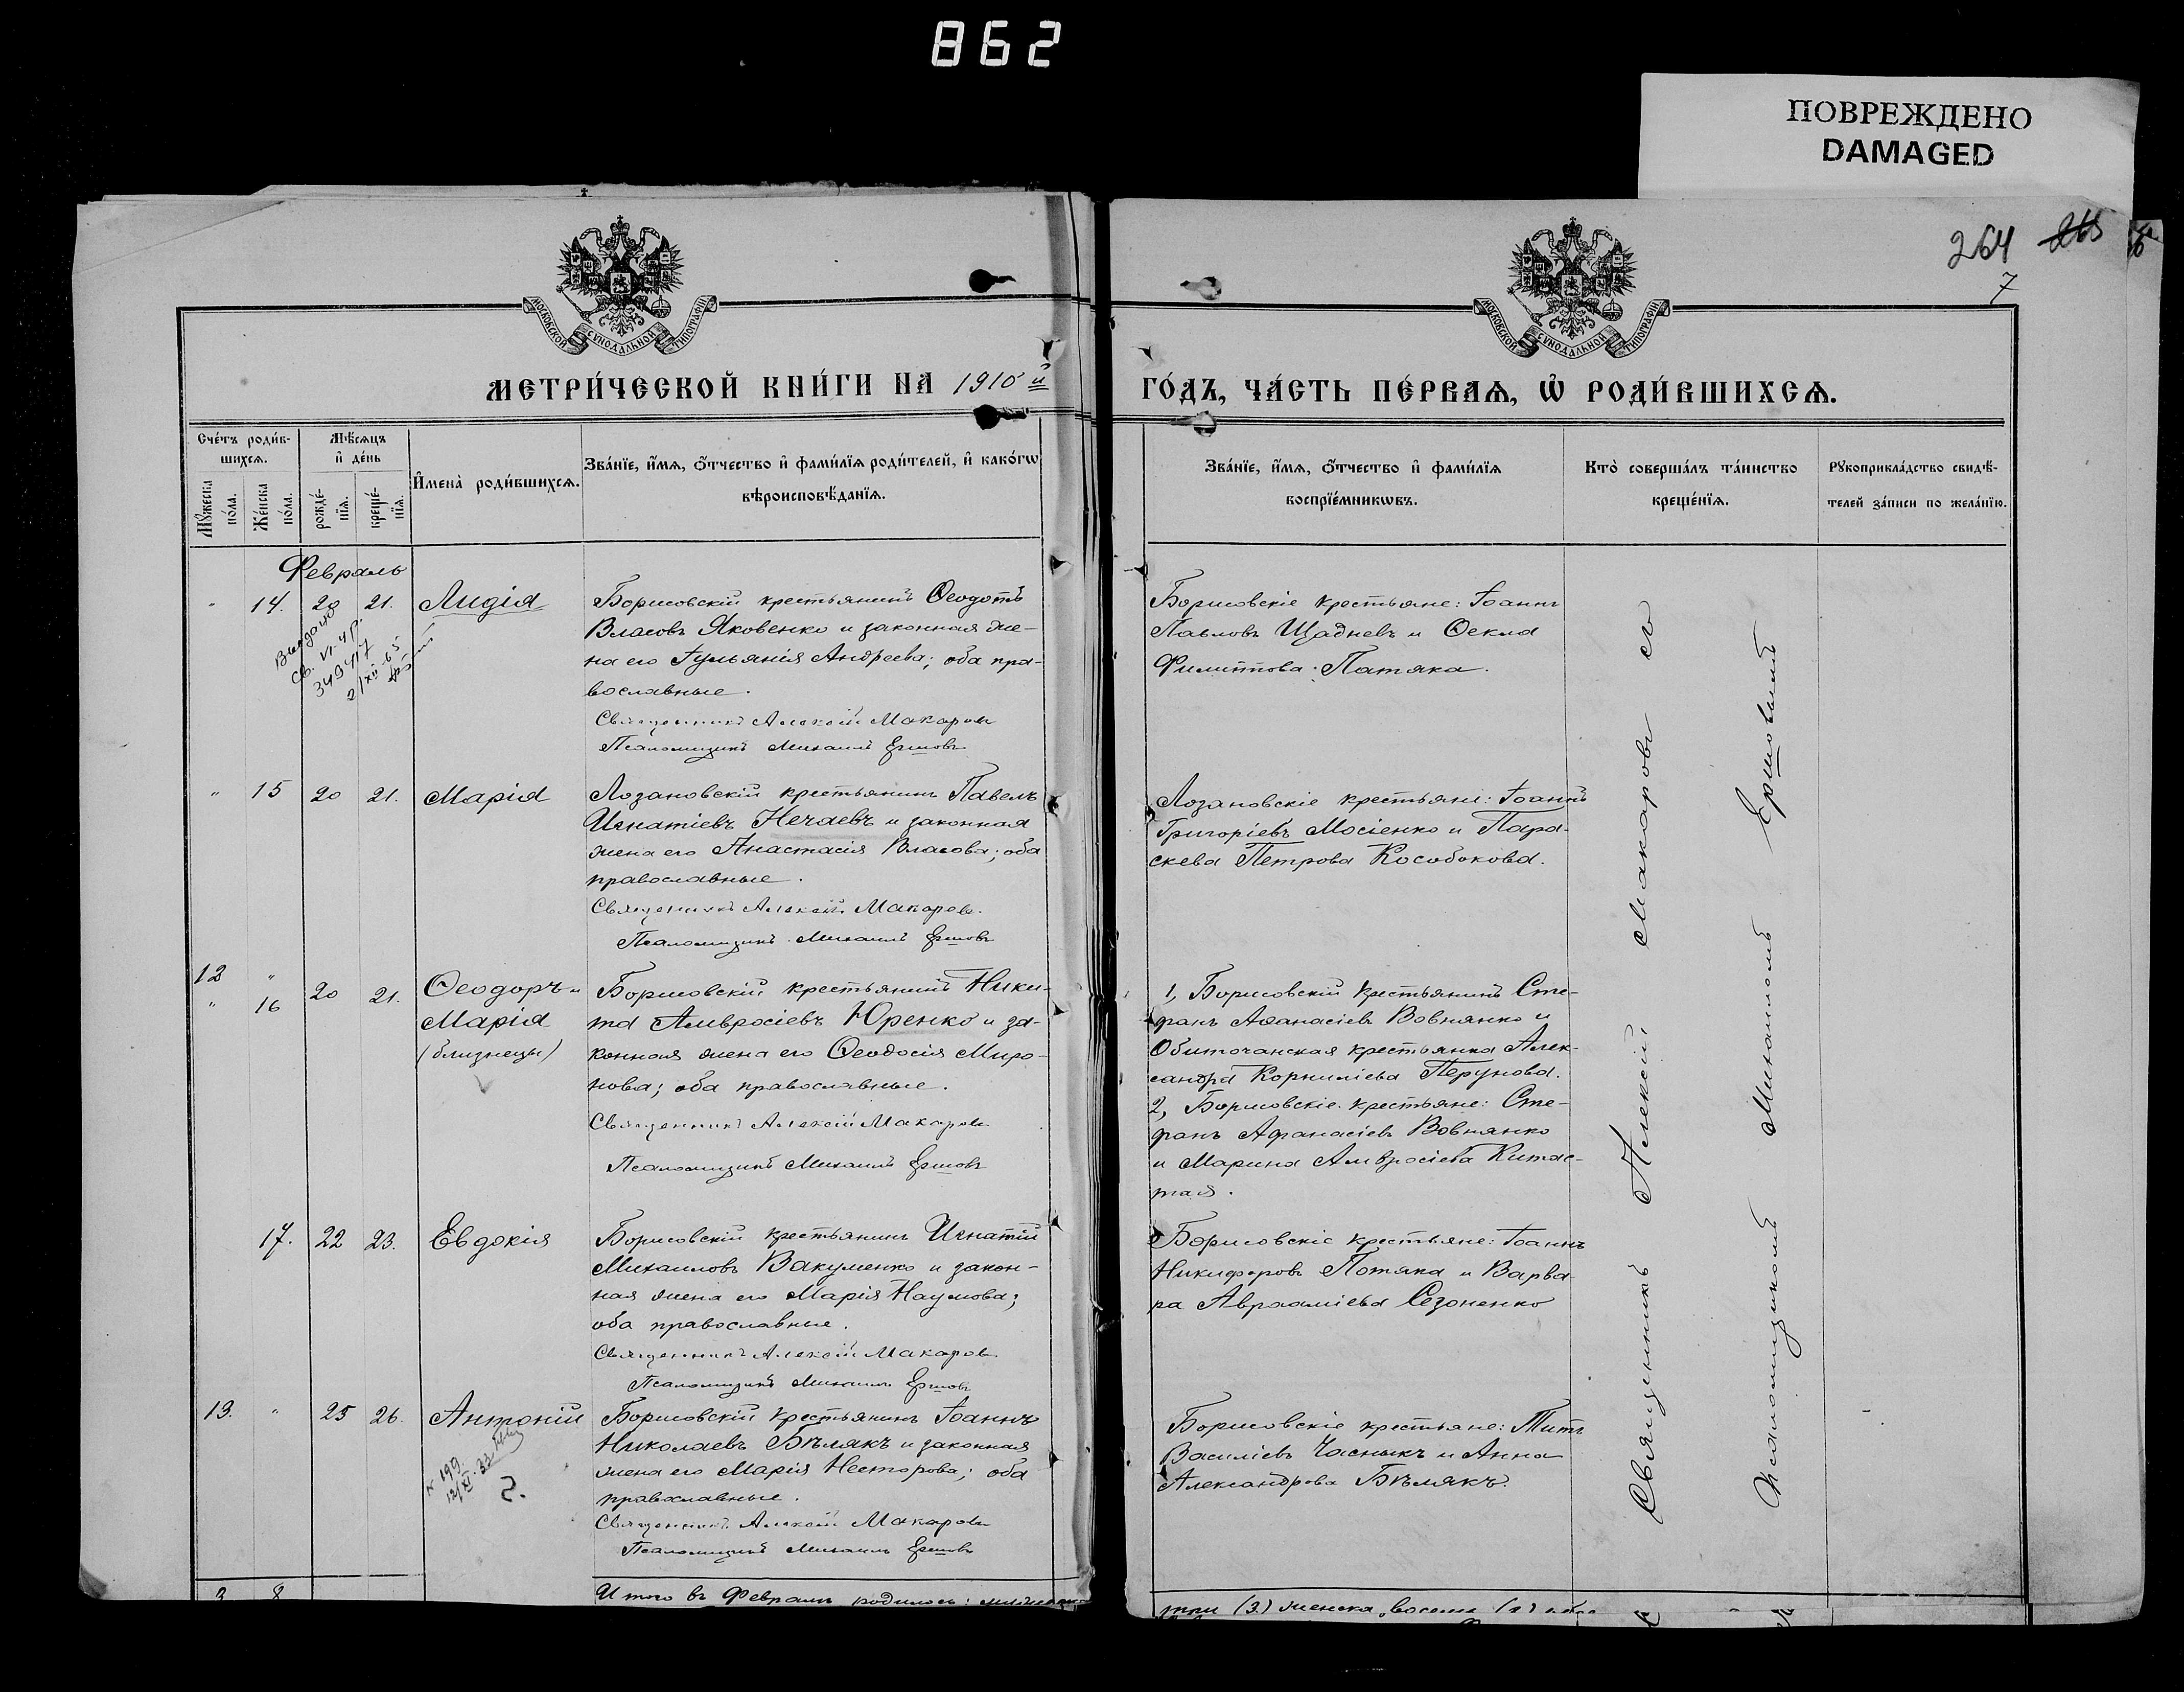 862
ПОВРЕЖДЕНО
DAMAGED
264 265
7
МОСКОВСКОЙ СѴНОДАЛЬНОЙ ТИПОГРАФІИ
МОСКОВСКОЙ СѴНОДАЛЬНОЙ ТИПОГРАФІИ
МЕТРИ́ЧЕСКОЙ КНИ́ГИ НА 1910 й
ГО́ДЪ, ЧА́СТЬ ПЕ́РВАѦ, Ѽ РОДИ́ВШИХСѦ.
Сче́тъ роди́в-
шихсѧ.
Мѣ́сѧцъ
и҆ де́нь
Мꙋ́жеска
по́ла.
Же́нска
по́ла.
рожде́-
нїѧ.
креще́-
нїѧ.
И҆мена̀ роди́вшихсѧ.
Зва́нїе, и҆́мѧ, ѻ҆́тчество и҆ фами́лїѧ роди́телей, и҆ како́гѡ
вѣроисповѣ́данїѧ.
Зва́нїе, и҆́мѧ, ѻ҆́тчество и҆ фами́лїѧ
воспрїе́мникѡвъ.
Кто̀ соверша́лъ та́инство
креще́нїѧ.
Рꙋкоприкла́дство свидѣ́-
телей за́писи по жела́нїю.
Февраль
" 14. 20 21. Лидія
Борисовскій крестьянинъ Ѳеодотъ
Власовъ Яковенко и законная же-
на его Іульянія Андреева; оба пра-
вославные.
Священникъ Алексій Макаровъ
Псаломщикъ Михаилъ Ершовъ
Выдано
св. VI-ч р.
349417
2/XII-65
Борисовскіе крестьяне: Іоаннъ
Павловъ Щадневъ и Ѳекла
Филиппова Патяка.
" 15 20 21. Марія
Лозановскій крестьянинъ Павелъ
Игнатіевъ Нечаевъ и законная
жена его Анастасія Власова; оба
православные.
Священникъ Алексій Макаровъ.
Псаломщикъ Михаилъ Ершовъ
Лозановскіе крестьяне: Іоаннъ
Григоріевъ Мосіенко и Пара-
скева Петрова Кособокова.
12 "
" 16 20 21. Ѳеодоръ и
Марія
(близнецы)
Борисовскій крестьянинъ Ники-
та Амвросіевъ Юренко и за-
конная жена его Ѳеодосія Миро-
нова; оба православные.
Священникъ Алексій Макаровъ
Псаломщикъ Михаилъ Ершовъ
1, Борисовскій крестьянинъ Сте-
фанъ Аѳанасіевъ Вовнянко и
Обиточанская крестьянка Алек-
сандра Корнилієва Перунова.
2, Борисовскіе крестьяне: Сте-
фанъ Афанасіевъ Вовнянко
и Марина Амвросіева Китас-
тая.
17. 22 23. Евдокія
Борисовскій крестьянинъ Игнатій
Михаиловъ Вакуменко и закон-
ная жена его Марія Наумова;
оба православные.
Священникъ Алексій Макаровъ
Псаломщикъ Михаилъ Ершовъ
Борисовскіе крестьяне: Іоаннъ
Никифоровъ Потяка и Варва-
ра Авраамієва Сезоненко
13. " 25 26. Антоній
N 199.
12/XI-33
2.
Борисовскій крестьянинъ Іоаннъ
Николаевъ Бѣлякъ и законная
жена его Марія Несторова; оба
православные.
Священникъ Алексій Макаровъ
Псаломщикъ Михаилъ Ершовъ
Борисовскіе крестьяне: Титъ
Василіевъ Часныкъ и Анна
Александрова Бѣлякъ.
Священникъ Алексій Макаровъ съ
Псаломщикомъ Михаиломъ Ершовымъ
3 8
Итого въ Февралѣ родилось:
три (3) женска восемь